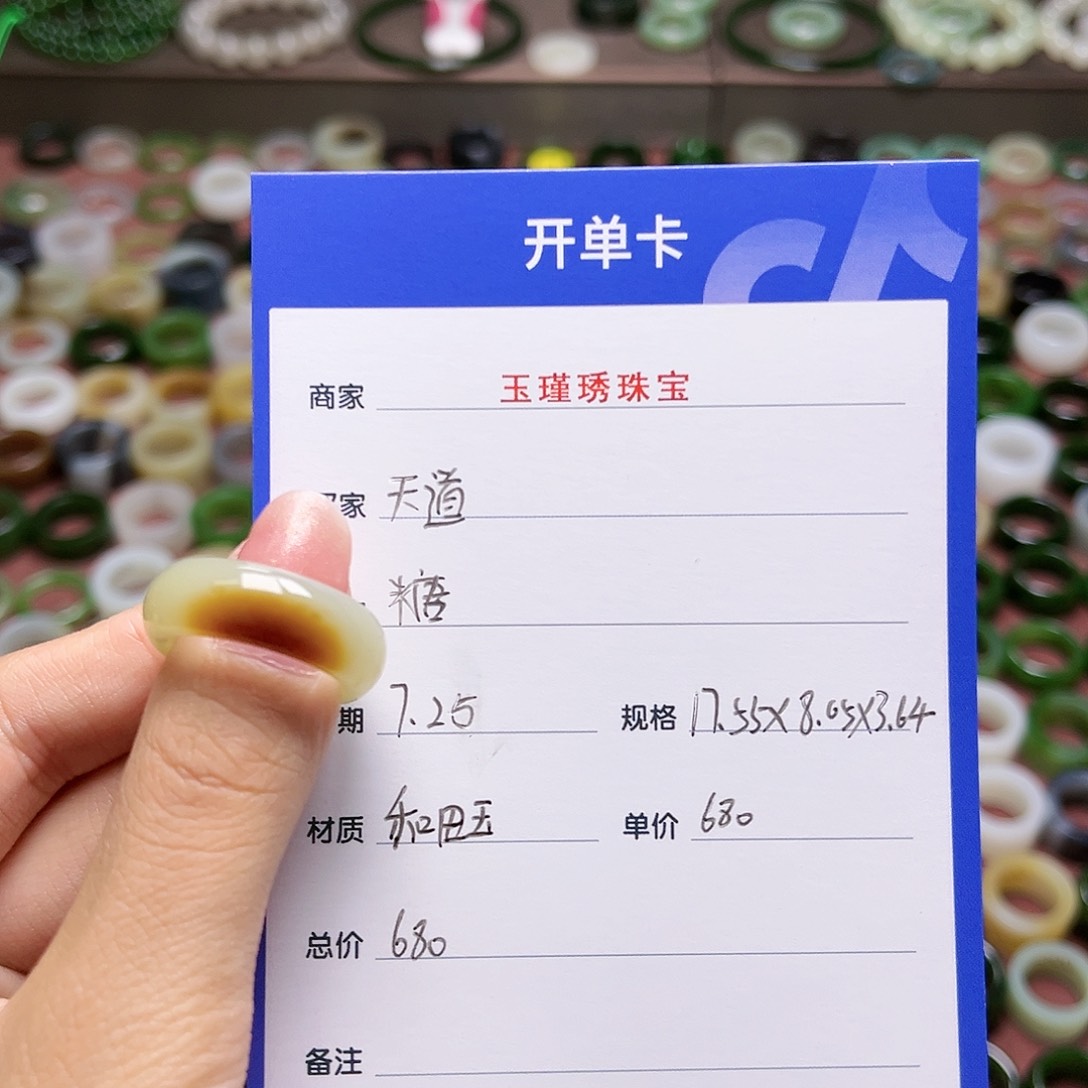 开单卡
商家 玉瑾琇珠宝
家 天道
糖
期 7.25 规格 17.55X8.05X3.64
材质 和田玉 单价 680
总价 680
备注